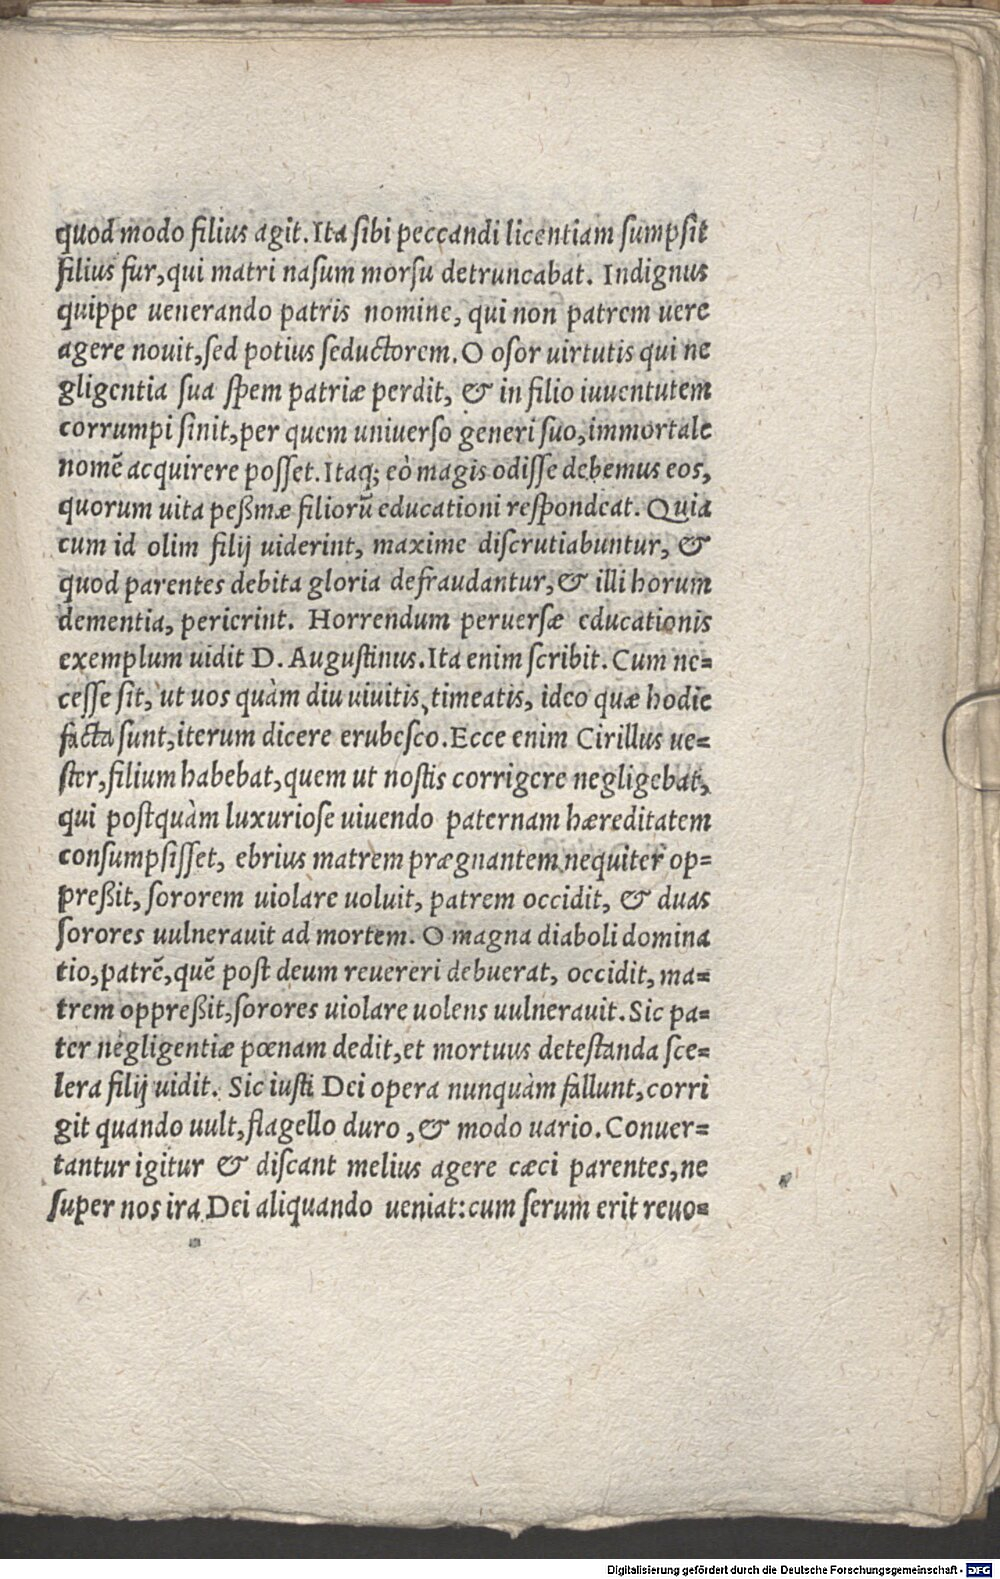 quod modo filius agit. Ita sibi peccandi licentiam sumpsit
filius fur, qui matri nasum morsu detruncabat. Indignus
quippe uenerando patris nomine, qui non patrem uere
agere nouit, sed potius seductorem. O osor uirtutis qui ne
gligentia sua spem patriæ perdit, & in filio iuuentutem
corrumpi sinit, per quem uniuerso generi suo, immortale
nomē acquirere posset. Itaq; eò magis odisse debemus eos,
quorum uita peßmæ filiorū educationi respondeat. Quia
cum id olim filij uiderint, maxime discrutiabuntur, &
quod parentes debita gloria defraudantur, & illi horum
dementia, perierint. Horrendum peruersæ educationis
exemplum uidit D. Augustinus. Ita enim scribit. Cum ne=
cesse sit, ut uos quàm diu uiuitis, timeatis, ideo quæ hodie
facta sunt, iterum dicere erubesco. Ecce enim Cirillus ue=
ster, filium habebat, quem ut nostis corrigere negligebat,
qui postquàm luxuriose uiuendo paternam hæreditatem
consumpsisset, ebrius matrem prægnantem nequiter op=
preßit, sororem uiolare uoluit, patrem occidit, & duas
sorores uulnerauit ad mortem. O magna diaboli domina
tio, patrē, quē post deum reuereri debuerat, occidit, ma=
trem oppreßit, sorores uiolare uolens uulnerauit. Sic pa=
ter negligentiæ pœnam dedit, et mortuus detestanda sce=
lera filij uidit. Sic iusti Dei opera nunquàm fallunt, corri
git quando uult, flagello duro, & modo uario. Conuer=
tantur igitur & discant melius agere cæci parentes, ne
super nos ira Dei aliquando ueniat: cum serum erit reuo=
Digitalisierung gefördert durch die Deutsche Forschungsgemeinschaft - DFG